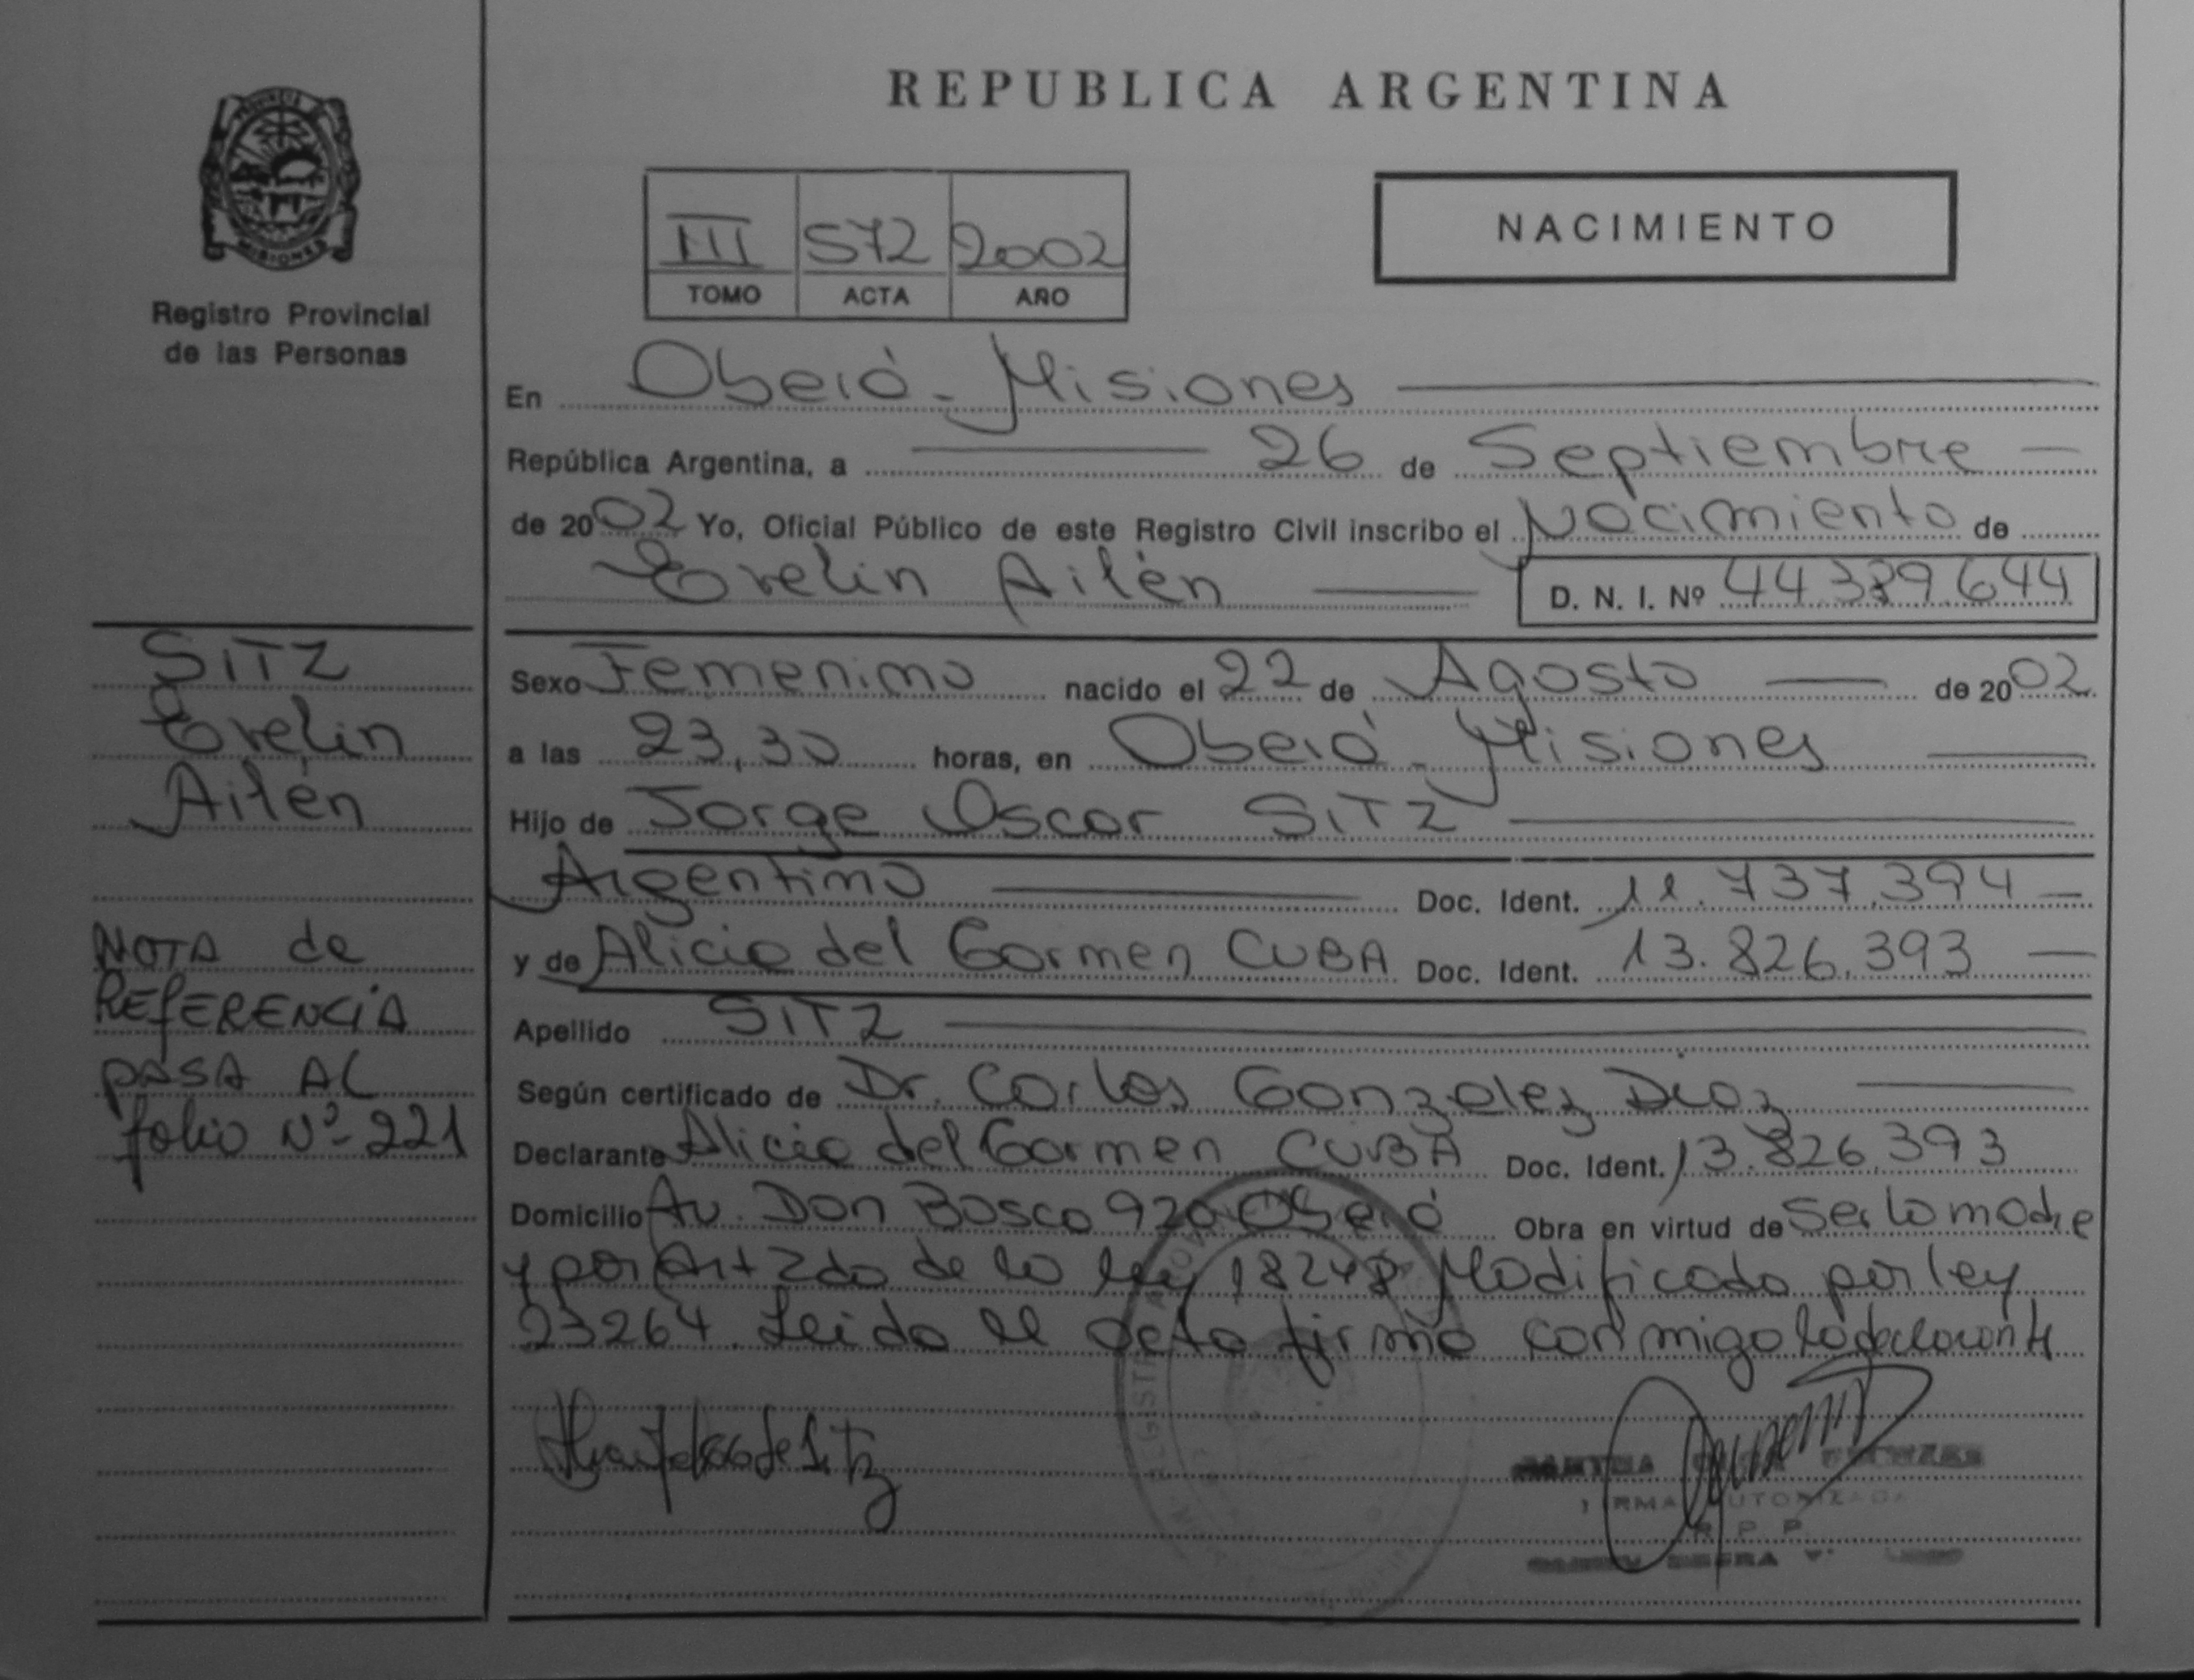 REPUBLICA ARGENTINA
PROVINCIA
MISIONES
Registro Provincial
de las Personas
III 572 2002
TOMO ACTA AÑO
NACIMIENTO
En Oberá - Misiones
República Argentina, a 26 de Septiembre
de 2002 Yo, Oficial Público de este Registro Civil inscribo el Nacimiento de
Evelin Ailén D. N. I. Nº 44.389.644
Sexo Femenino nacido el 22 de Agosto de 2002
a las 23,30 horas, en Oberá - Misiones
Hijo de Jorge Oscar SITZ
Argentino Doc. Ident. 11.737.394
y de Alicia del Carmen CUBA Doc. Ident. 13.826.393
Apellido SITZ
Según certificado de Dr. Carlos Gonzalez Diaz
Declarante Alicia del Carmen CUBA Doc. Ident. 13.826.393
Domicilio Av. Don Bosco 920 Oberá Obra en virtud de Ser la madre
y por Art 2do de la ley 18248 Modificado por ley
23264. Leida el acta firma conmigo la declarante
SITZ
Evelin
Ailén
NOTA de
REFERENCIA
PASA AL
folio Nº 221
de Sitz
FIRMA AUTORIZADA
R. P. P.